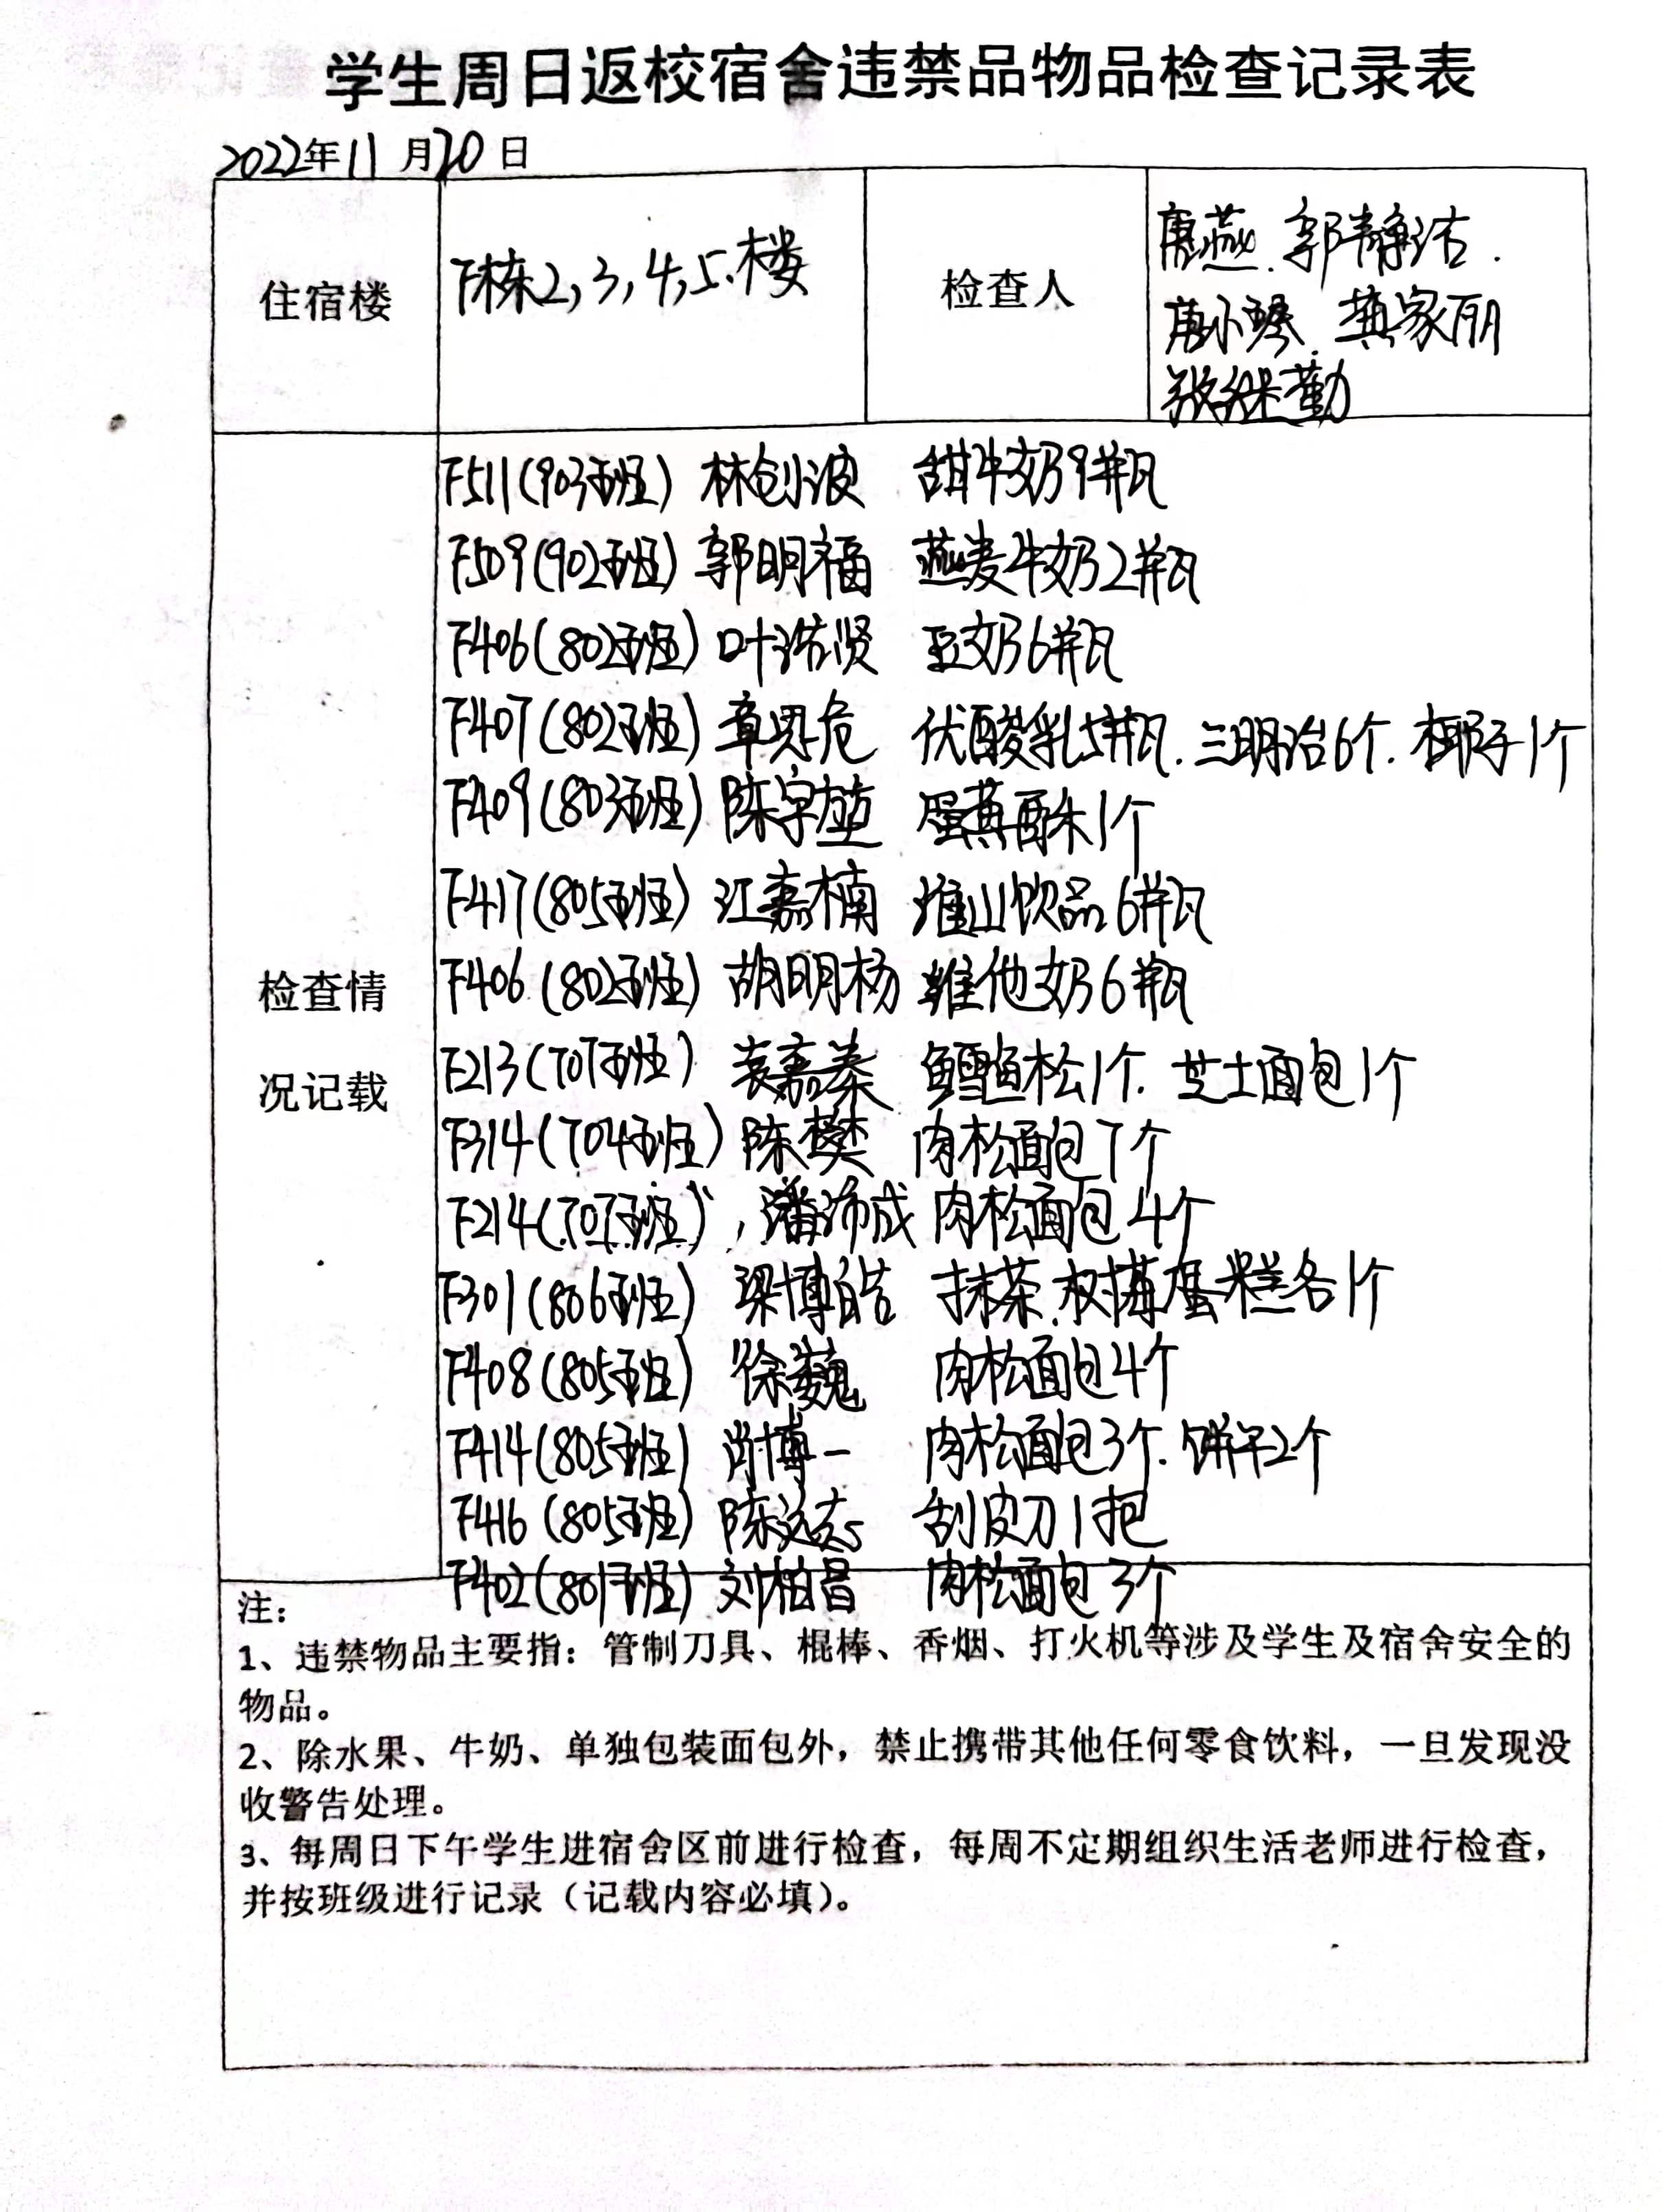 学生周日返校宿舍违禁品物品检查记录表
2022年11月20日
住宿楼
F栋2,3,4,5.楼
检查人
唐燕.郭静洁.
唐小琴.龚家丽
张继勤
检查情
况记载
F511(903班) 林创波 甜牛奶9瓶
F509(902班) 郭明福 燕麦牛奶2瓶
F406(802班) 叶诺贤 豆奶6瓶
F407(802班) 章思危 优酸乳5瓶.三明治6个.椰子1个
F409(803班) 陈宇堃 蛋黄酥1个
F417(805班) 江嘉楠 淮山饮品6瓶
F406(802班) 胡明杨 维他奶6瓶
F213(707班) 袁嘉泰 鳕鱼松1个.芝士面包1个
F314(704班) 陈樊 肉松面包7个
F214(707班),潘沛成 肉松面包4个
F301(806班) 梁博皓 抹茶.树莓蛋糕各1个
F408(805班) 徐巍 肉松面包4个
F414(805班) 肖博一 肉松面包3个.饼干2个
F416(805班) 陈 刮皮刀1把
F402(801班) 刘柏昌 肉松面包3个
注:
1、违禁物品主要指:管制刀具、棍棒、香烟、打火机等涉及学生及宿舍安全的
物品。
2、除水果、牛奶、单独包装面包外,禁止携带其他任何零食饮料,一旦发现没
收警告处理。
3、每周日下午学生进宿舍区前进行检查,每周不定期组织生活老师进行检查,
并按班级进行记录(记载内容必填)。